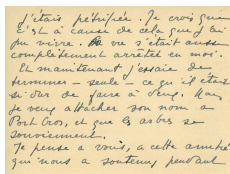 j'étais pétrifiée. Je crois que
c'est à cause de cela que j'ai
pu vivre. La vie s'était aussi
complètement arrêtée en moi.
Et maintenant j'essaie de
terminer – seule – ce qu'il était
si dur de faire à deux. Mais
je veux attacher son nom à
Port Cros, et que les arbres se
souviennent.
Je pense à vous, à cette amitié
qui nous a soutenus pendant